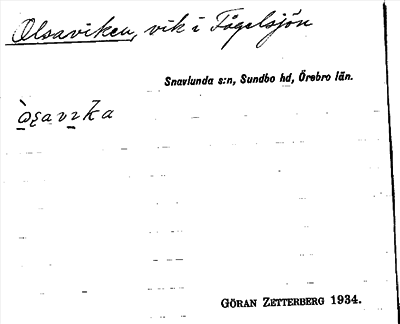 Olsaviken, vik i Fågelsjön
Snavlunda s:n, Sundbo hd, Örebro län.
GÖRAN ZETTERBERG 1934.